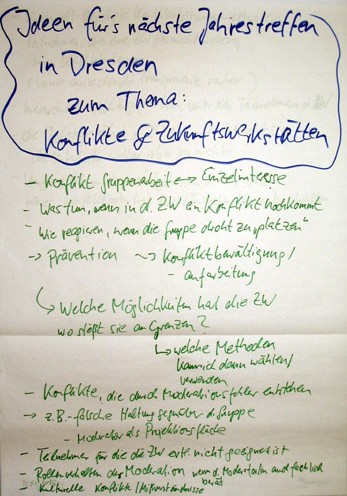 Ideen für's nächste Jahrestreffen
in Dresden
zum Thema:
Konflikte & Zukunftswerkstätten
- Konflikt gruppenarbeit ↔ Einzelinteresse
- Was tun, wenn in d. ZW ein Konflikt hochkommt
- Wie reagieren, wenn die Gruppe droht zu „platzen"
→ Prävention ⤳ Konfliktbewältigung/
- aufarbeitung
↳ Welche Möglichkeiten hat die ZW
wo stößt sie an Grenzen?
↳ welche Methoden
kann ich dann wählen/
verwenden
- Konflikte, die durch Moderationsfehler entstehen
→ z.B. - falsche Haltung gegenüber d. Gruppe
- Moderator als Projektionsfläche
- Teilnehmer für die die ZW evtl. nicht geeignet ist
- Rollenverhalten der Moderation wenn d. Moderator/in auch fachlich
berät
- kulturelle Konflikte/Missverständnisse